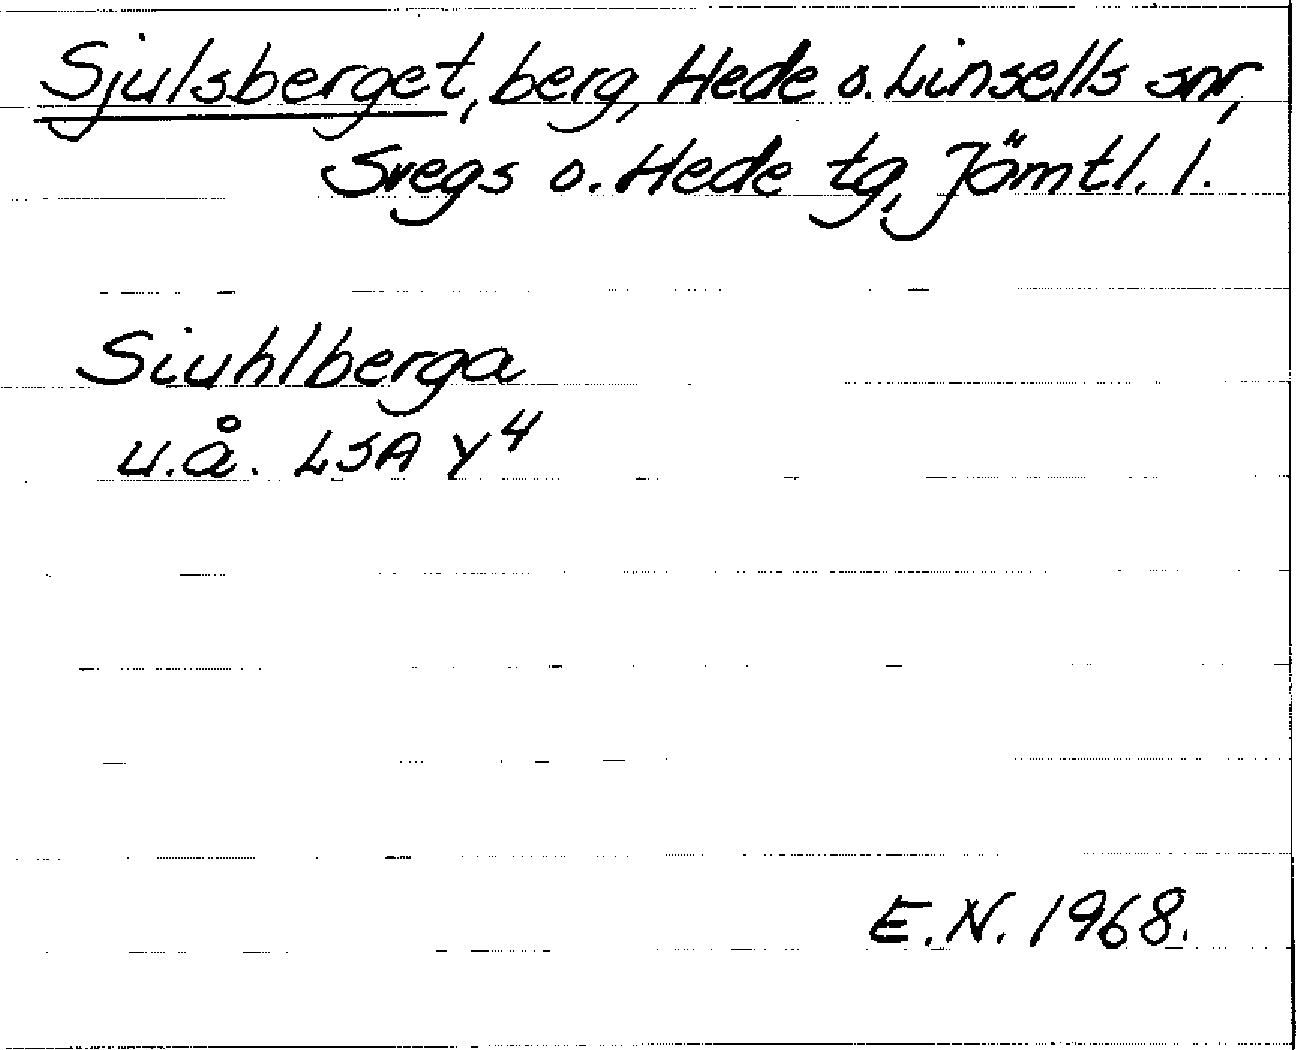 Sjulsberget, berg, Hede o. Linsells snr,
Svegs o. Hede tg, Jämtl. l.
Siuhlberga
u.å. LSA Y4
E.N. 1968.